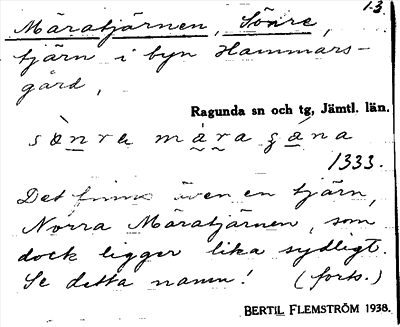 13.
Märatjärnen, Södre,
tjärn i byn Hammars-
gård,
Ragunda sn och tg, Jämtl. län.
1333.
Det finns även en tjärn,
Norra Märatjärnen, som
dock ligger lika sydligt.
Se detta namn! (forts.)
BERTIL FLEMSTRÖM 1938.